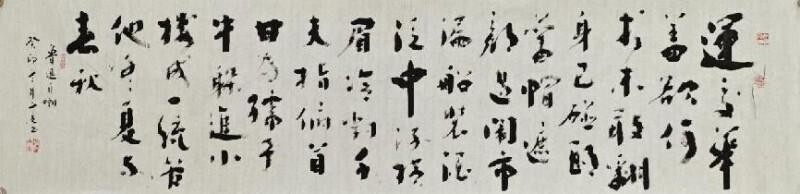 運交華
蓋欲何
求未敢翻
身已碰頭
舊帽遮
顏過鬧市
漏船載酒
泛中流橫
眉冷對千
夫指俯首
甘為孺子
牛躲進小
樓成一統管
他冬夏与
春秋
魯迅自嘲
癸卯十月